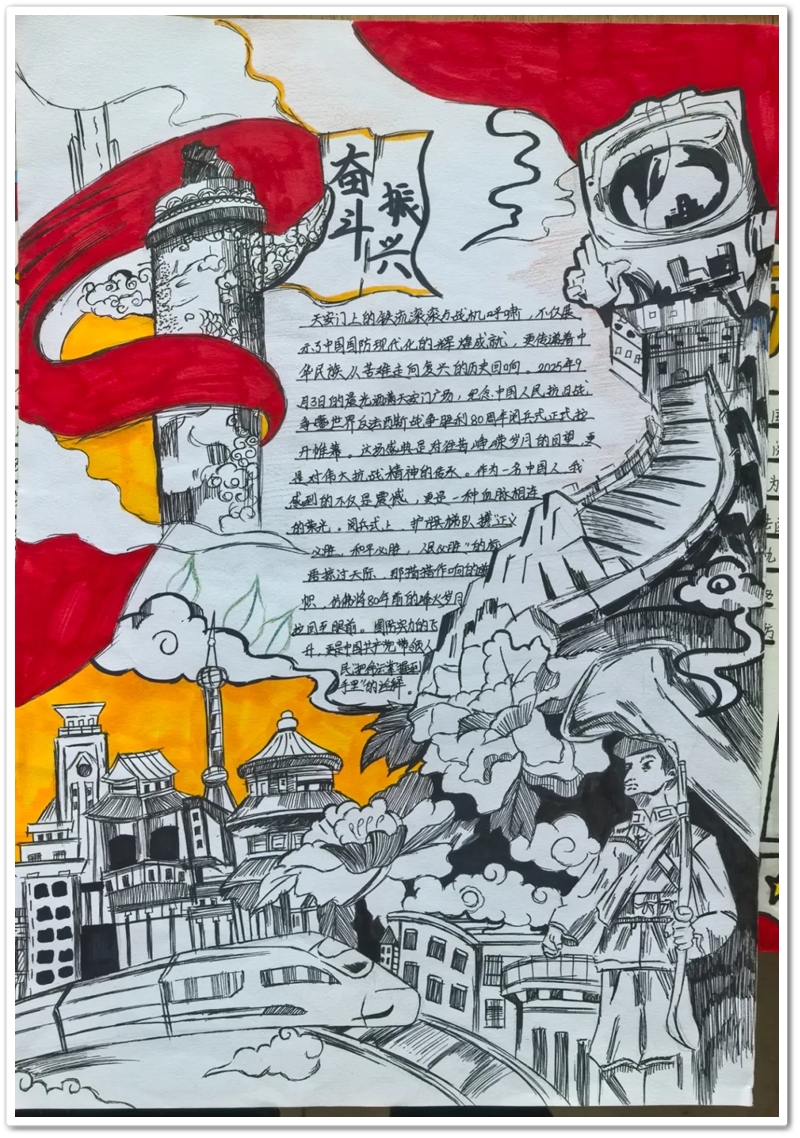 奋斗
振兴
天安门上的铁流滚滚与战机呼啸，不仅展
示了中国国防现代化的辉煌成就，更传递着中
华民族从苦难走向复兴的历史回响。2025年9
月3日的晨光洒满天安门广场，纪念中国人民抗日战
争暨世界反法西斯战争胜利80周年阅兵式正式拉
开帷幕。这场盛典是对往昔峥嵘岁月的回望，更
是对伟大抗战精神的传承。作为一名中国人，我
感到的不仅是震撼，更是一种血脉相连
的荣光。阅兵式上，护旗梯队携“正义
必胜、和平必胜、人民必胜”的旗
语掠过天际，那猎猎作响的旗
帜，仿佛将80年前的烽火岁月
拉回至眼前。国防实力的飞
升，更是中国共产党带领人
民把命运掌握到
手里”的诠释。